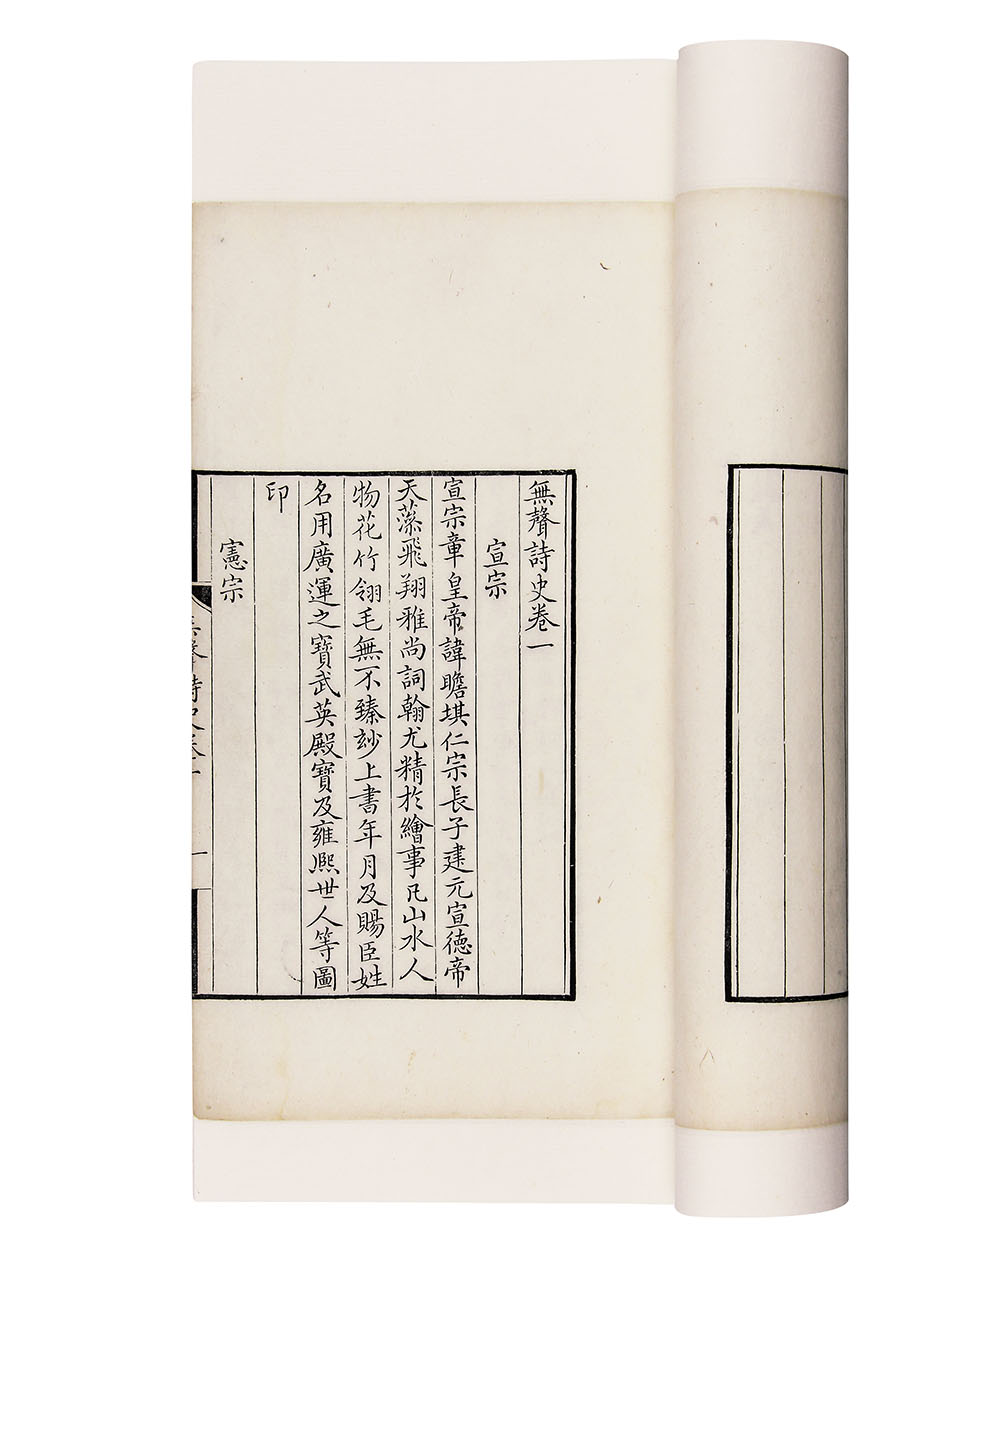 無聲詩史卷一
宣宗
宣宗章皇帝諱瞻埱仁宗長子建元宣德帝
天藻飛翔雅尚詞翰尤精於繪事凡山水人
物花竹翎毛無不臻玅上書年月及賜臣姓
名用廣運之寶武英殿寶及雍熙世人等圖
印
憲宗